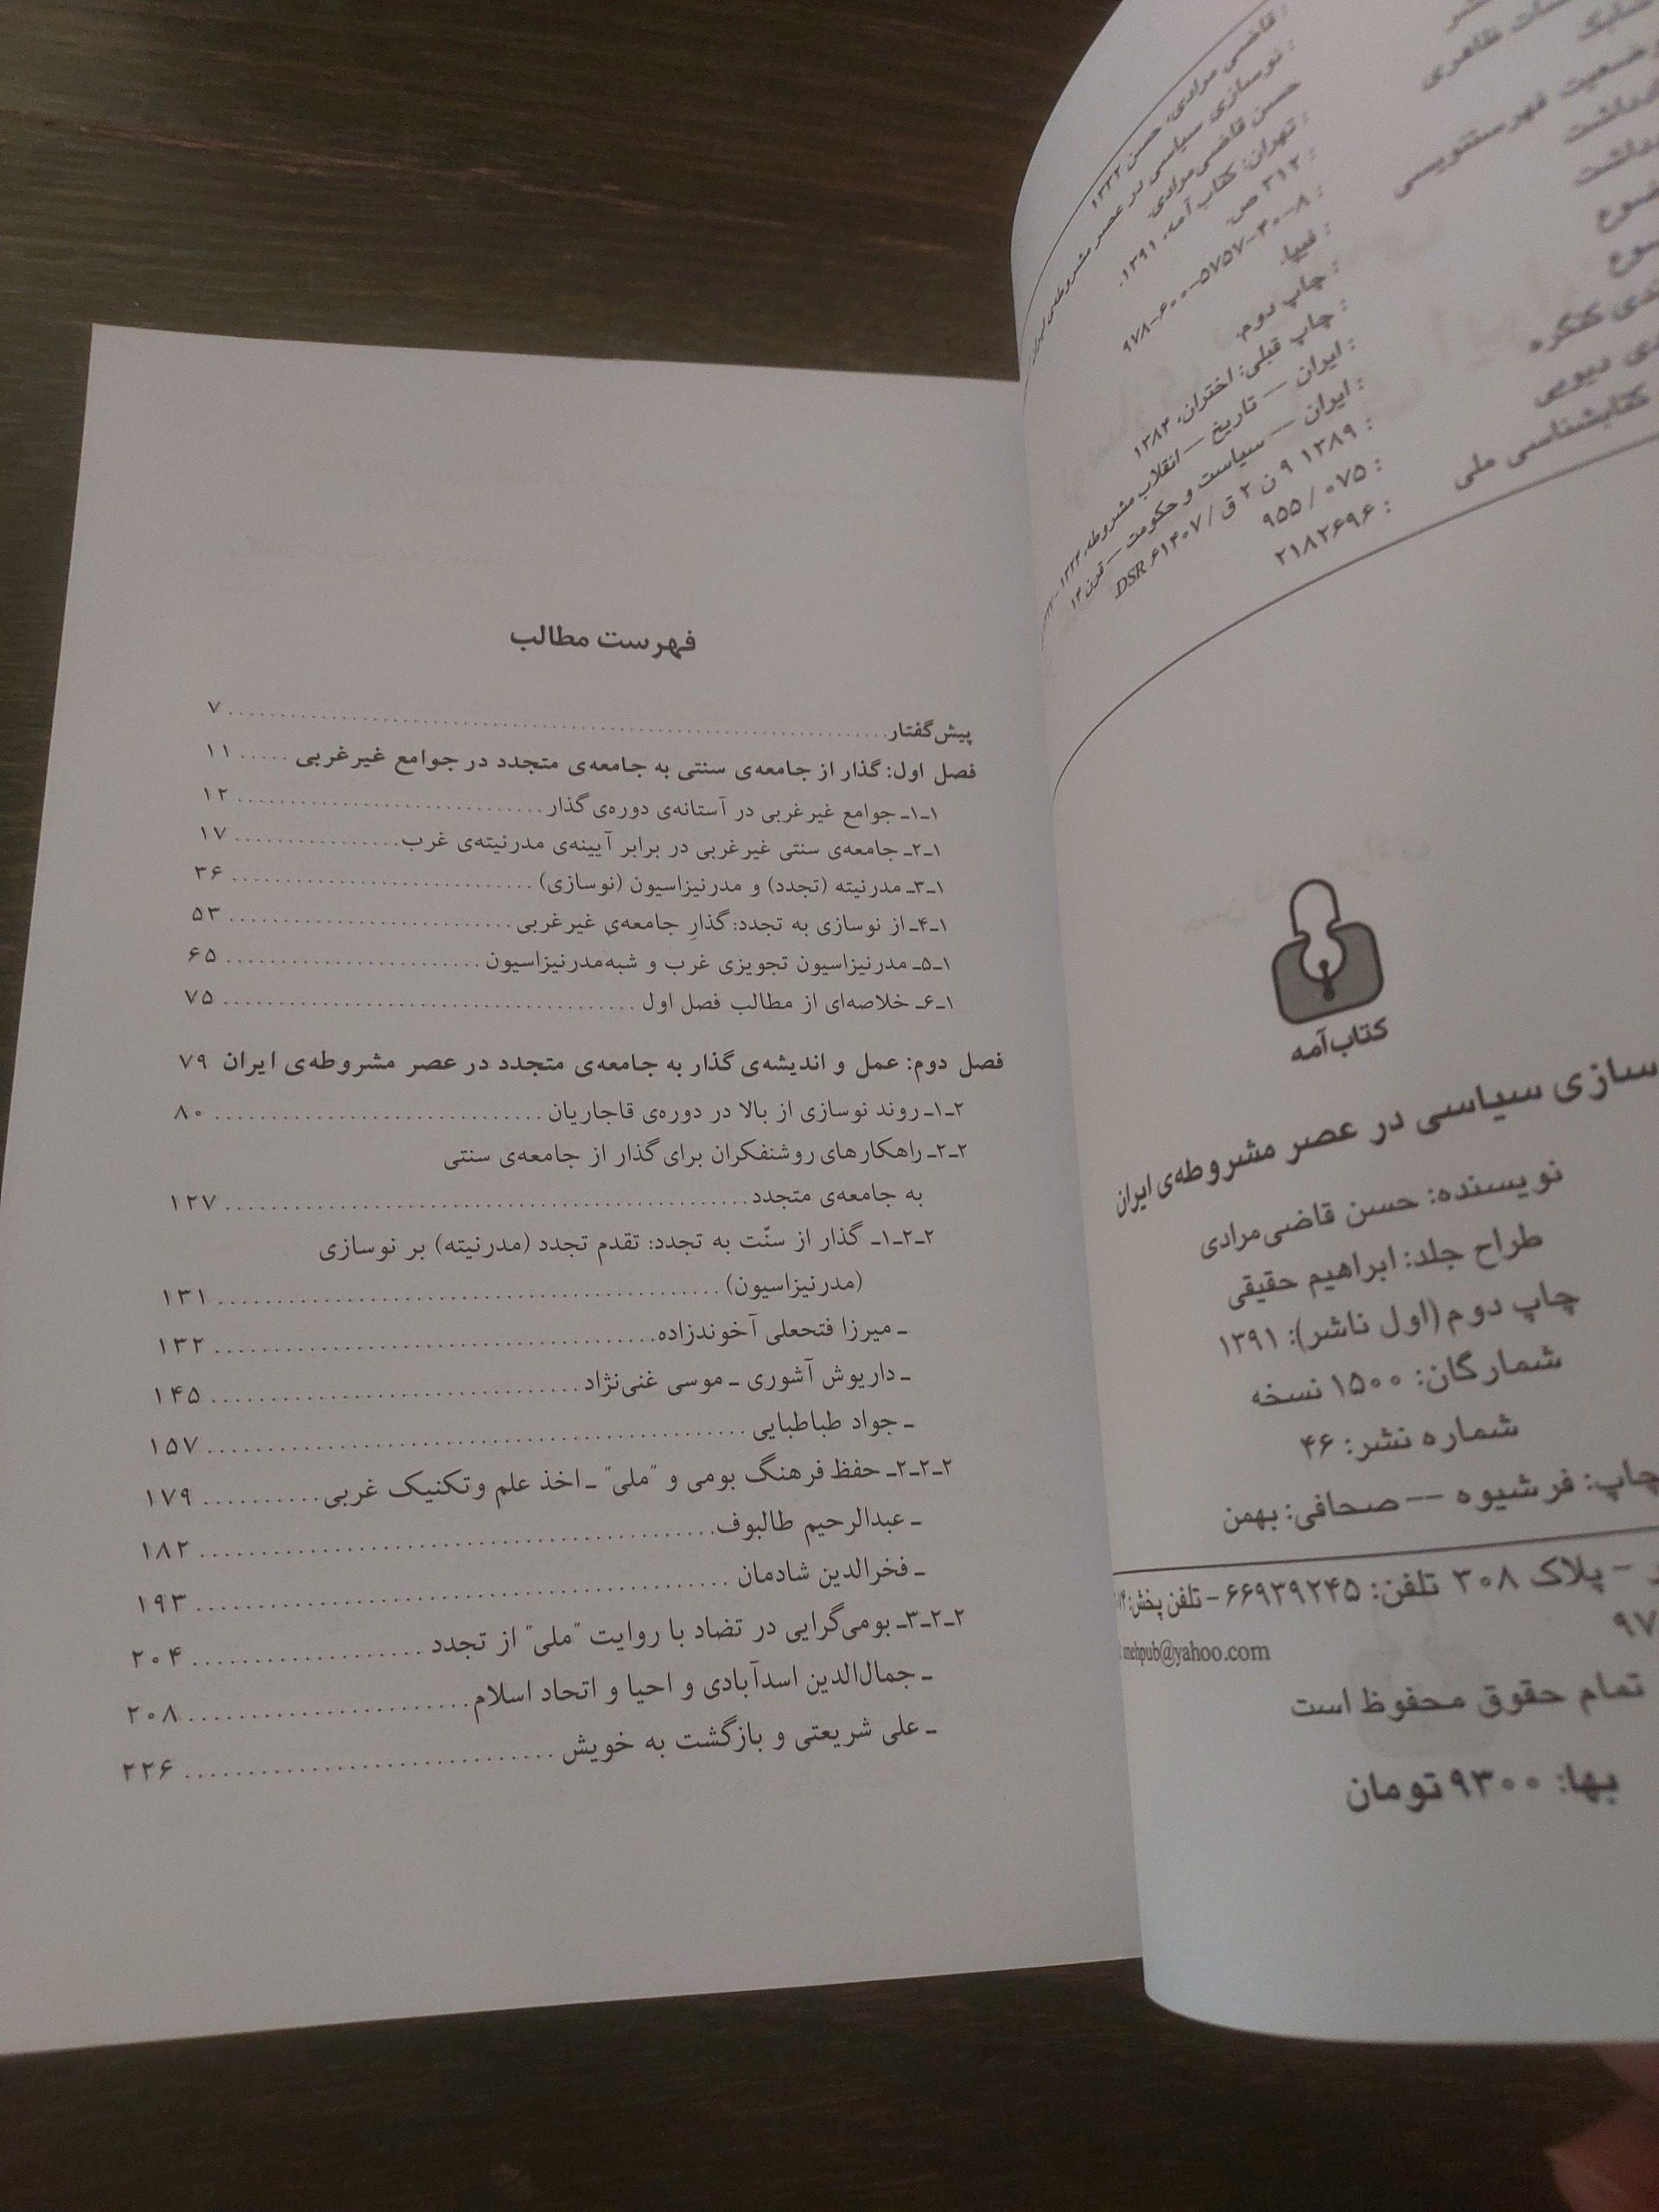 قاضی مرادی، حسن ۱۳۳۲
: نوسازی سیاسی در عصر مشروطه‌ی ایران
حسن قاضی‌مرادی.
: تهران: کتاب آمه، ۱۳۹۱.
: ۳۱۲ ص.
: ۹۷۸-۶۰۰-۵۷۵۷-۴۰-۸
وضعیت فهرستنویسی : فیپا.
: چاپ دوم.
: چاپ قبلی: اختران، ۱۳۸۴
: ایران — تاریخ — انقلاب مشروطه،
: ایران — سیاست و حکومت — قرن ۱۴
کنگره : ۱۳۸۹ ۹ ن ۲ ق / ۱۴۰۷ DSR
دیویی : ۰۷۵ / ۹۵۵
کتابشناسی ملی : ۲۱۸۲۶۹۶
کتاب‌آمه
سازی سیاسی در عصر مشروطه‌ی ایران
نویسنده: حسن قاضی‌مرادی
طراح جلد: ابراهیم حقیقی
چاپ دوم (اول ناشر): ۱۳۹۱
شمارگان: ۱۵۰۰ نسخه
شماره نشر: ۴۶
چاپ: فرشیوه — صحافی: بهمن
- پلاک ۳۰۸ تلفن: ۶۶۹۳۹۲۴۵ - تلفن پخش:
metpub@yahoo.com
تمام حقوق محفوظ است
بها: ۹۳۰۰ تومان
فهرست مطالب
پیش‌گفتار ........ ۷
فصل اول: گذار از جامعه‌ی سنتی به جامعه‌ی متجدد در جوامع غیرغربی ..... ۱۱
۱ـ۱ـ جوامع غیرغربی در آستانه‌ی دوره‌ی گذار ........ ۱۲
۱ـ۲ـ جامعه‌ی سنتی غیرغربی در برابر آیینه‌ی مدرنیته‌ی غرب ........ ۱۷
۱ـ۳ـ مدرنیته (تجدد) و مدرنیزاسیون (نوسازی) ........ ۳۶
۱ـ۴ـ از نوسازی به تجدد: گذارِ جامعه‌یِ غیرغربی ........ ۵۳
۱ـ۵ـ مدرنیزاسیون تجویزی غرب و شبه‌مدرنیزاسیون ........ ۶۵
۱ـ۶ـ خلاصه‌ای از مطالب فصل اول ........ ۷۵
فصل دوم: عمل و اندیشه‌ی گذار به جامعه‌ی متجدد در عصر مشروطه‌ی ایران ۷۹
۲ـ۱ـ روند نوسازی از بالا در دوره‌ی قاجاریان ........ ۸۰
۲ـ۲ـ راهکارهای روشنفکران برای گذار از جامعه‌ی سنتی
به جامعه‌ی متجدد ........ ۱۲۷
۲ـ۲ـ۱ـ گذار از سنّت به تجدد: تقدم تجدد (مدرنیته) بر نوسازی
(مدرنیزاسیون) ........ ۱۳۱
ـ میرزا فتحعلی آخوندزاده ........ ۱۳۲
ـ داریوش آشوری ـ موسی غنی‌نژاد ........ ۱۴۵
ـ جواد طباطبایی ........ ۱۵۷
۲ـ۲ـ۲ـ حفظ فرهنگ بومی و "ملی" ـ اخذ علم و تکنیک غربی ........ ۱۷۹
ـ عبدالرحیم طالبوف ........ ۱۸۲
ـ فخرالدین شادمان ........ ۱۹۳
۲ـ۲ـ۳ـ بومی‌گرایی در تضاد با روایت "ملی" از تجدد ........ ۲۰۴
ـ جمال‌الدین اسدآبادی و احیا و اتحاد اسلام ........ ۲۰۸
ـ علی شریعتی و بازگشت به خویش ........ ۲۲۶